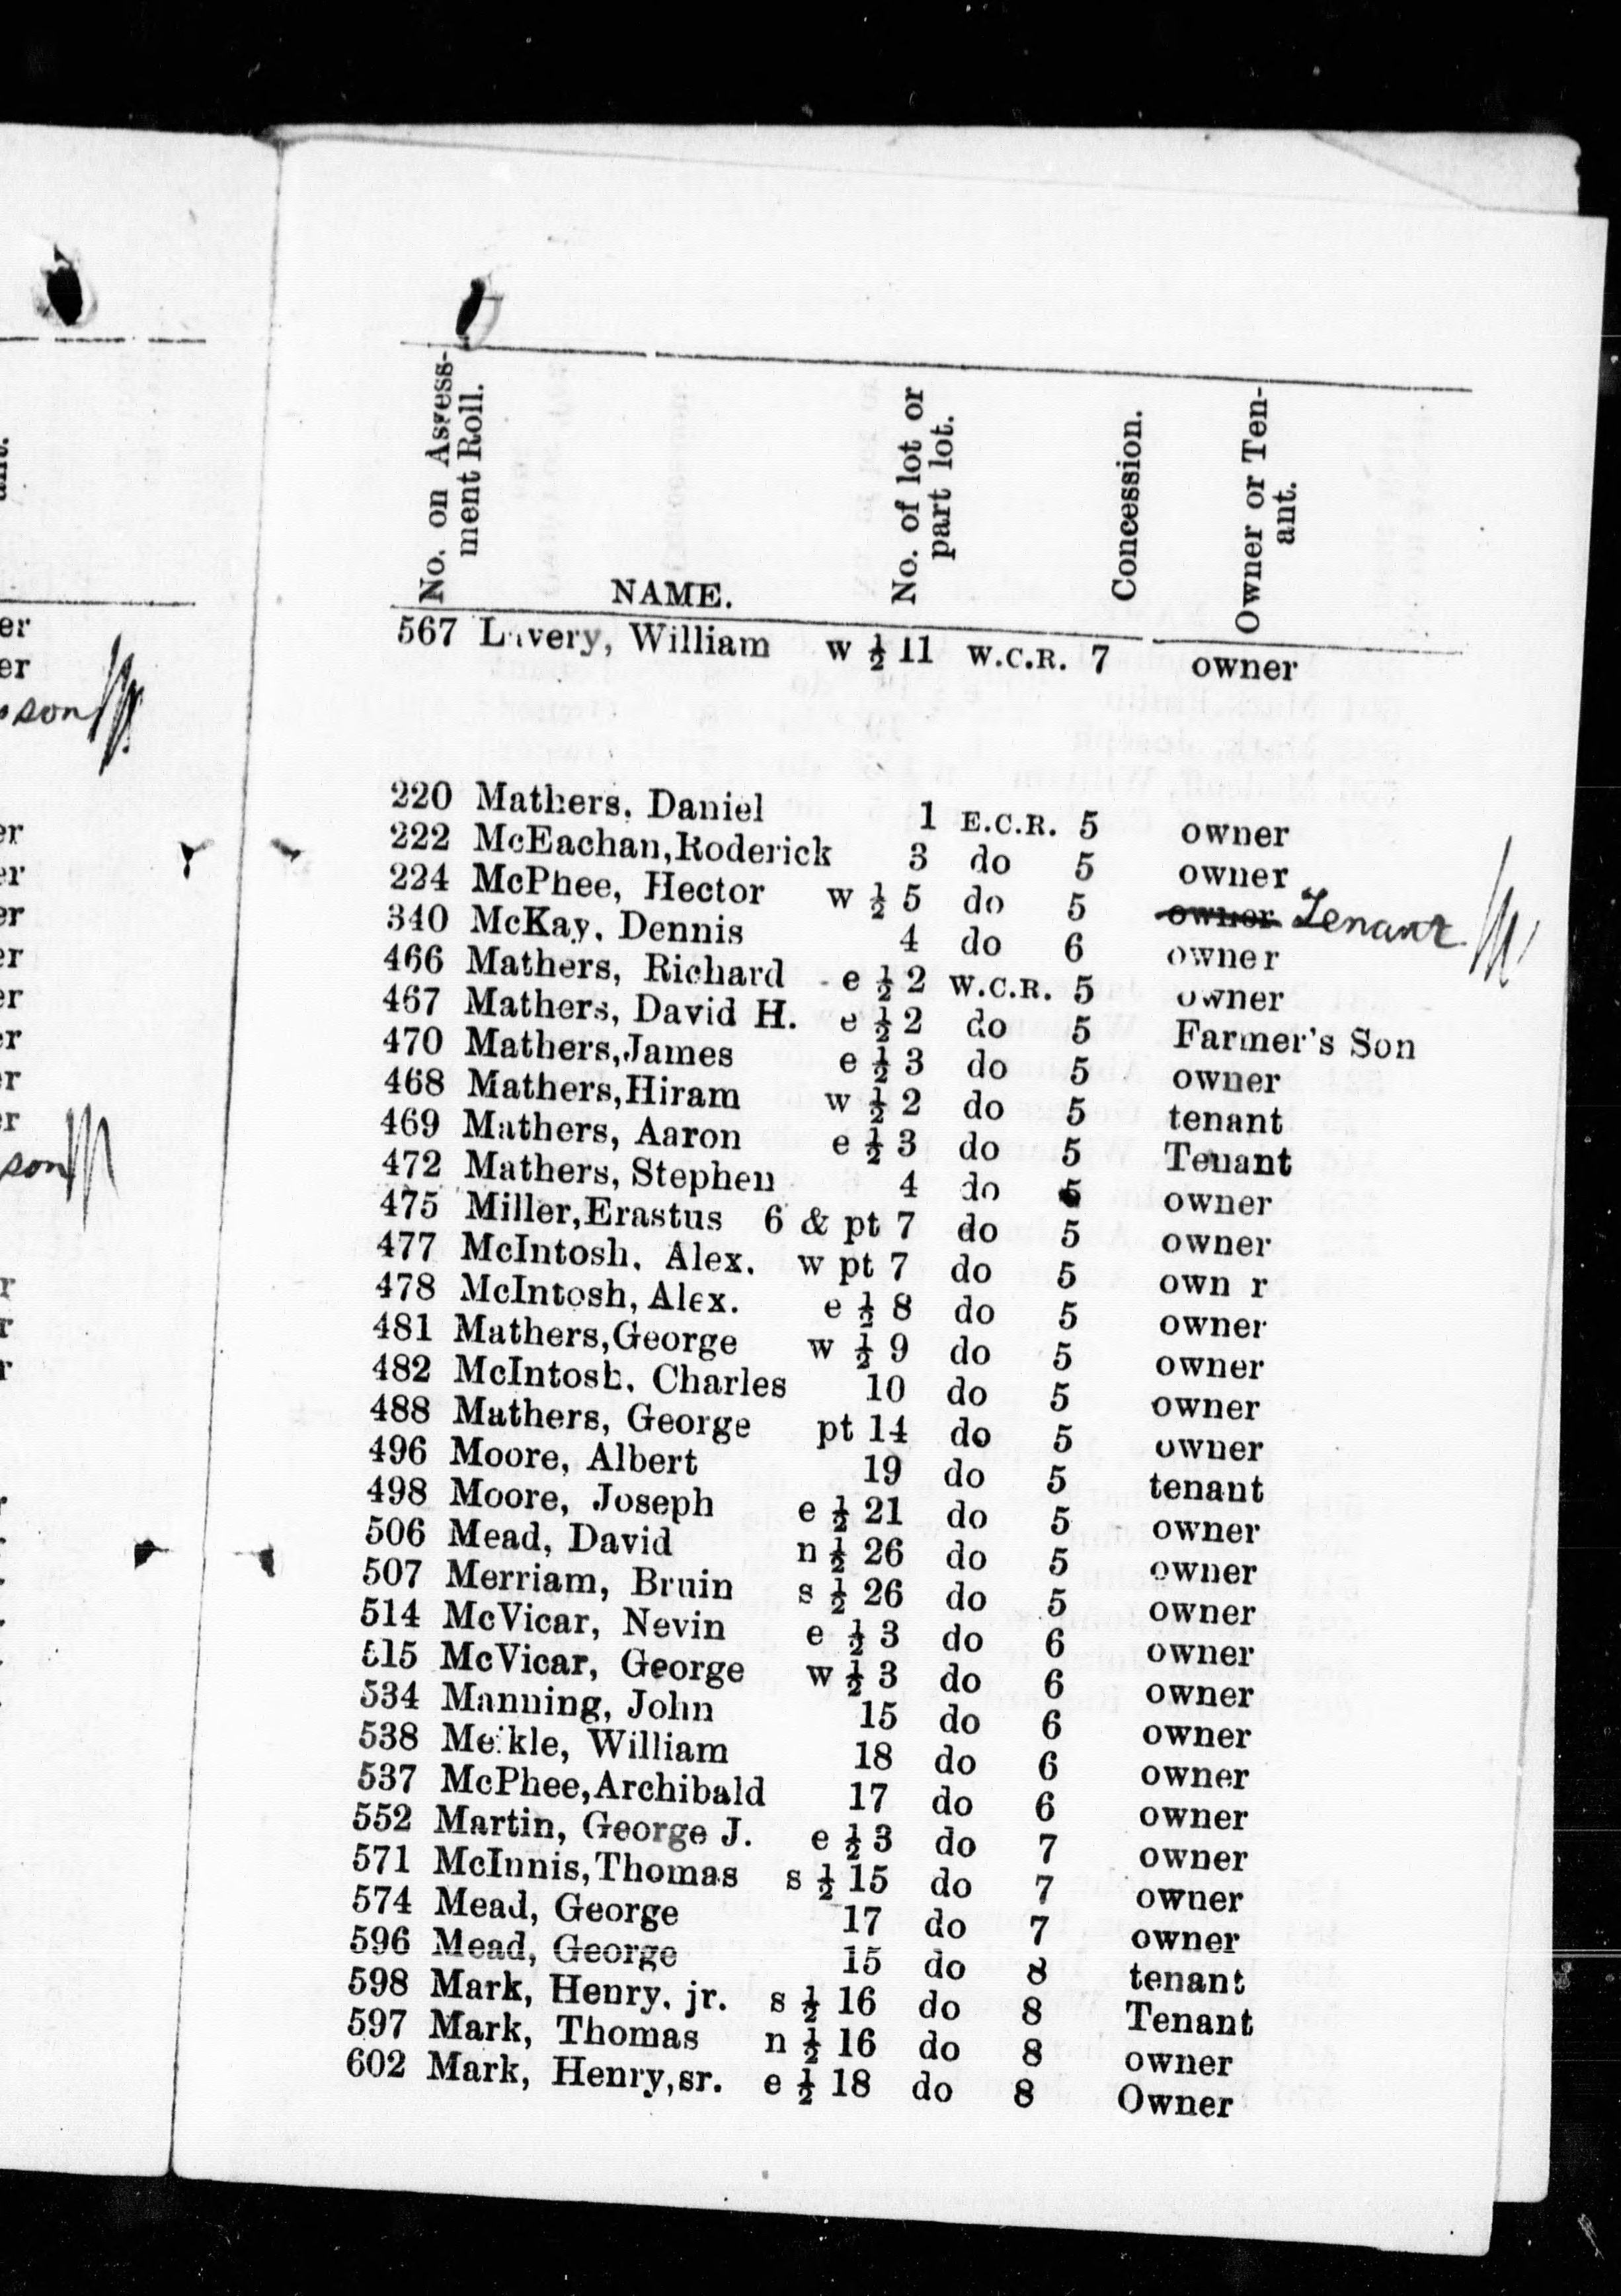 No. on Assess-
ment Roll.
NAME.
No. of lot or
part lot.
Concession.
Owner or Ten-
ant.
567 Lavery, William w ½ 11 W.C.R. 7 owner
220 Mathers, Daniel 1 E.C.R. 5 owner
222 McEachan, Roderick 3 do 5 owner
224 McPhee, Hector w ½ 5 do 5 owner Tenant
340 McKay, Dennis 4 do 6 owner
466 Mathers, Richard e ½ 2 W.C.R. 5 owner
467 Mathers, David H. e ½ 2 do 5 Farmer's Son
470 Mathers, James e ½ 3 do 5 owner
468 Mathers, Hiram w ½ 2 do 5 tenant
469 Mathers, Aaron e ½ 3 do 5 Tenant
472 Mathers, Stephen 4 do 5 owner
475 Miller, Erastus 6 & pt 7 do 5 owner
477 McIntosh, Alex. w pt 7 do 5 own r
478 McIntosh, Alex. e ½ 8 do 5 owner
481 Mathers, George w ½ 9 do 5 owner
482 McIntosh, Charles 10 do 5 owner
488 Mathers, George pt 14 do 5 owner
496 Moore, Albert 19 do 5 tenant
498 Moore, Joseph e ½ 21 do 5 owner
506 Mead, David n ½ 26 do 5 owner
507 Merriam, Bruin s ½ 26 do 5 owner
514 McVicar, Nevin e ½ 3 do 6 owner
515 McVicar, George w ½ 3 do 6 owner
534 Manning, John 15 do 6 owner
538 Meikle, William 18 do 6 owner
537 McPhee, Archibald 17 do 6 owner
552 Martin, George J. e ½ 3 do 7 owner
571 McInnis, Thomas s ½ 15 do 7 owner
574 Mead, George 17 do 7 owner
596 Mead, George 15 do 8 tenant
598 Mark, Henry, jr. s ½ 16 do 8 Tenant
597 Mark, Thomas n ½ 16 do 8 owner
602 Mark, Henry, sr. e ½ 18 do 8 Owner